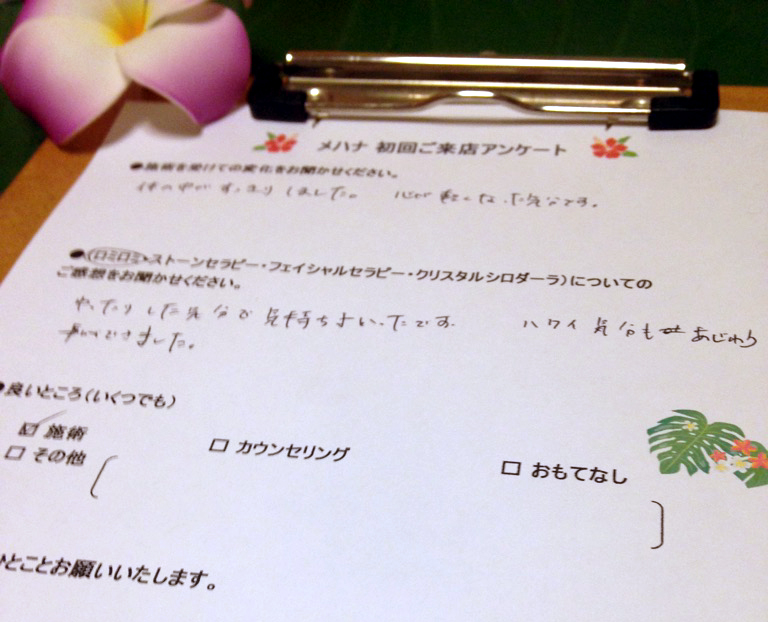 メハナ 初回ご来店アンケート
●施術を受けての変化をお聞かせください。
体の中がすっきりしました。 心が軽くなった気分です。
●(ロミロミ・ストーンセラピー・フェイシャルセラピー・クリスタルシロダーラ)についての
ご感想をお聞かせください。
ゆったりした気分で気持ちよかったです。 ハワイ気分も あじわう
事ができました。
●良いところ(いくつでも)
☑ 施術 □ カウンセリング □ おもてなし
□ その他 ( )
ひとことお願いいたします。